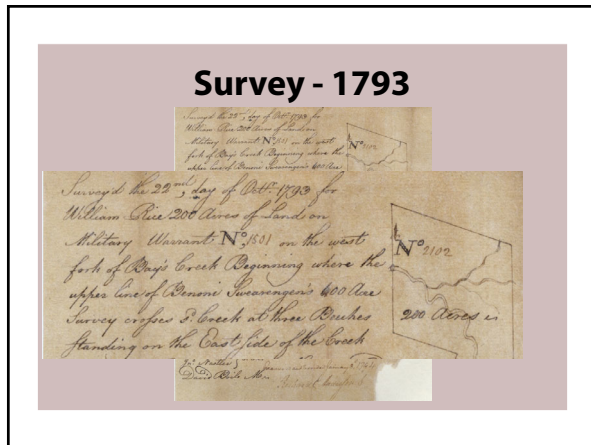 Survey - 1793
Survey'd the 22nd, day of Octr. 1793 for
William Rice 200 Acres of Land on
Military Warrant No. 1501 on the west
fork of Bay's Creek Beginning where the
upper line of Benoni Swearengen's 400 Acre
Survey'd the 22nd, day of Octr. 1793 for
William Rice 200 Acres of Land on
Military Warrant No. 1501 on the west
fork of Bay's Creek Beginning where the
upper line of Benoni Swearengen's 400 Acre
Survey crosses sd. Creek at three Buckes
Standing on the East side of the Creek
No. 2102
No. 2102
200 Acres is